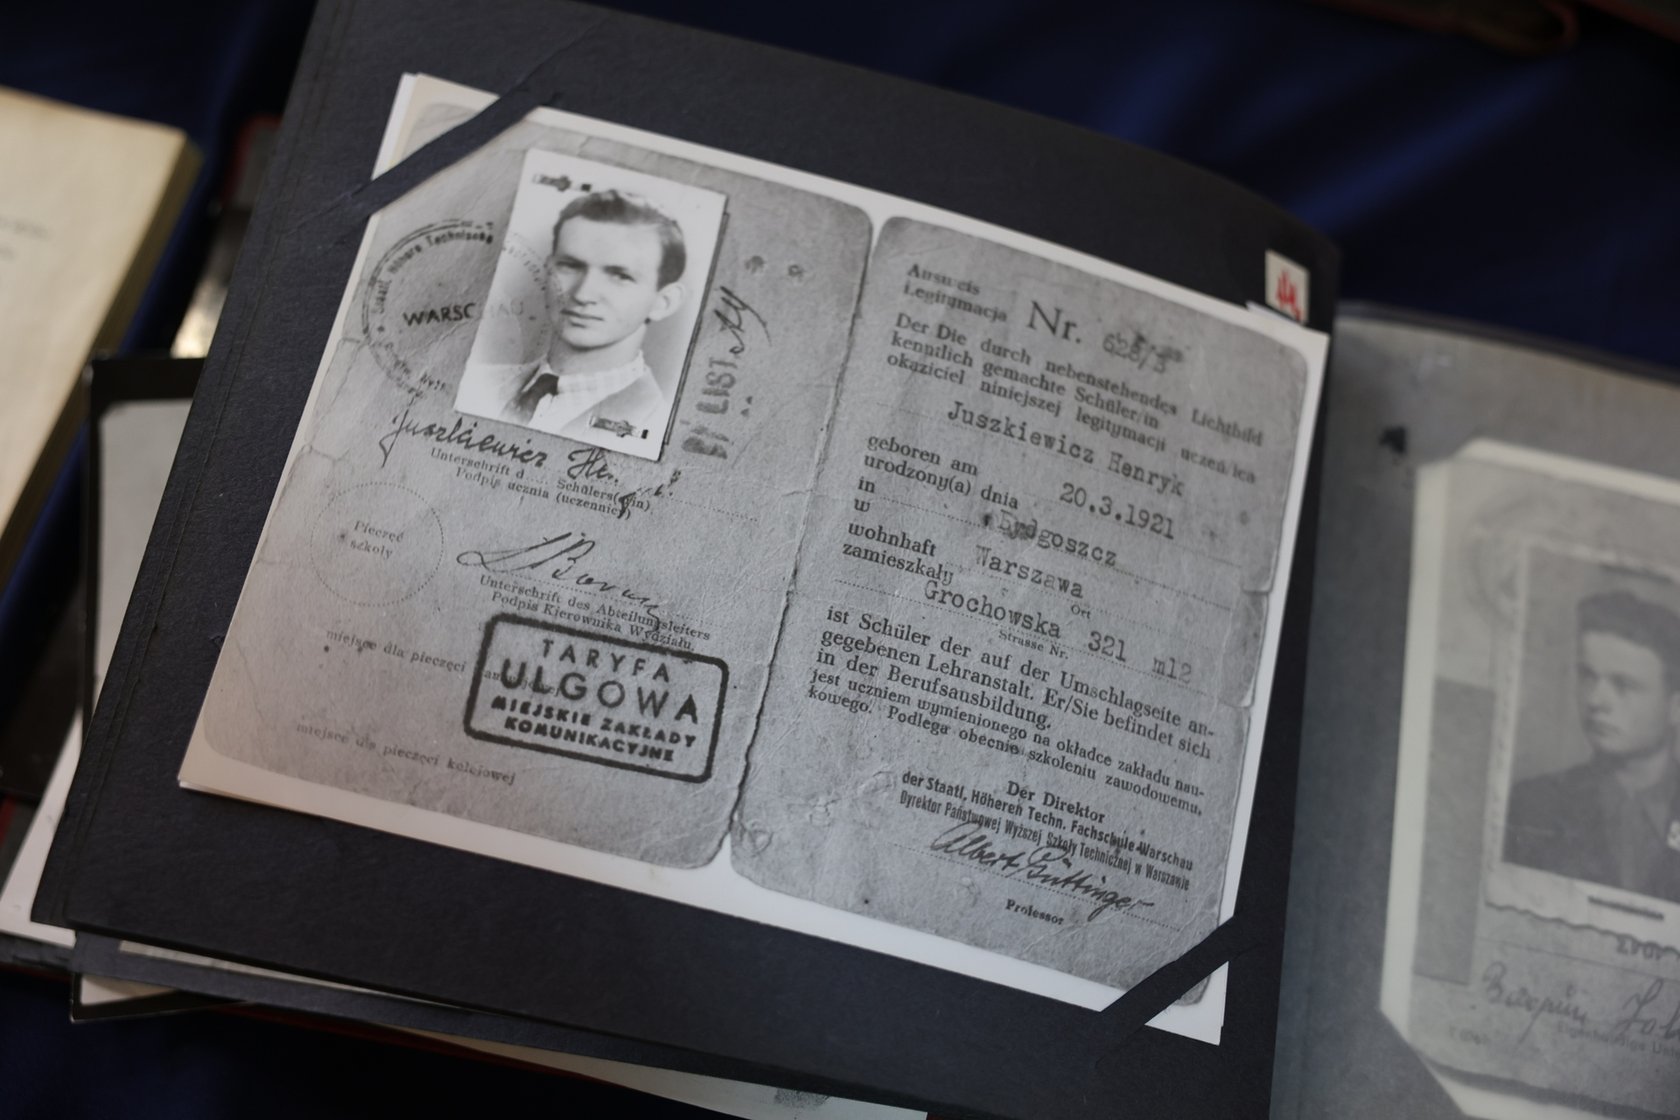 Staatl. Höhere Technische
WARSCHAU
BILISTY
Juszkiewicz Henryk
Unterschrift d.... Schülers(in)
Podpis ucznia (uczennicy)
Pieczęć
szkoły
Unterschrift des Abteilungsleiters
Podpis Kierownika Wydziału.
miejsce dla pieczęci
TARYFA
ULGOWA
MIEJSKIE ZAKŁADY
KOMUNIKACYJNE
miejsce dla pieczęci kolejowej
Ausweis
Legitymacja Nr. 628/3
Der Die durch nebenstehendes Lichtbild
kenntlich gemachte Schüler/in
okaziciel niniejszej legitymacji uczeń/ica
Juszkiewicz Henryk
geboren am
urodzony(a) dnia 20.3.1921
in
w Bydgoszcz
wohnhaft Warszawa
zamieszkały Ort
Grochowska 321 m12
Strasse Nr.
ist Schüler der auf der Umschlagseite an-
gegebenen Lehranstalt. Er/Sie befindet sich
in der Berufsausbildung.
jest uczniem wymienionego na okładce zakładu nau-
kowego. Podlega obecnie szkoleniu zawodowemu.
Der Direktor
der Staatl. Höheren Techn. Fachschule Warschau
Dyrektor Państwowej Wyższej Szkoły Technicznej w Warszawie
Albert Güttinger
Professor